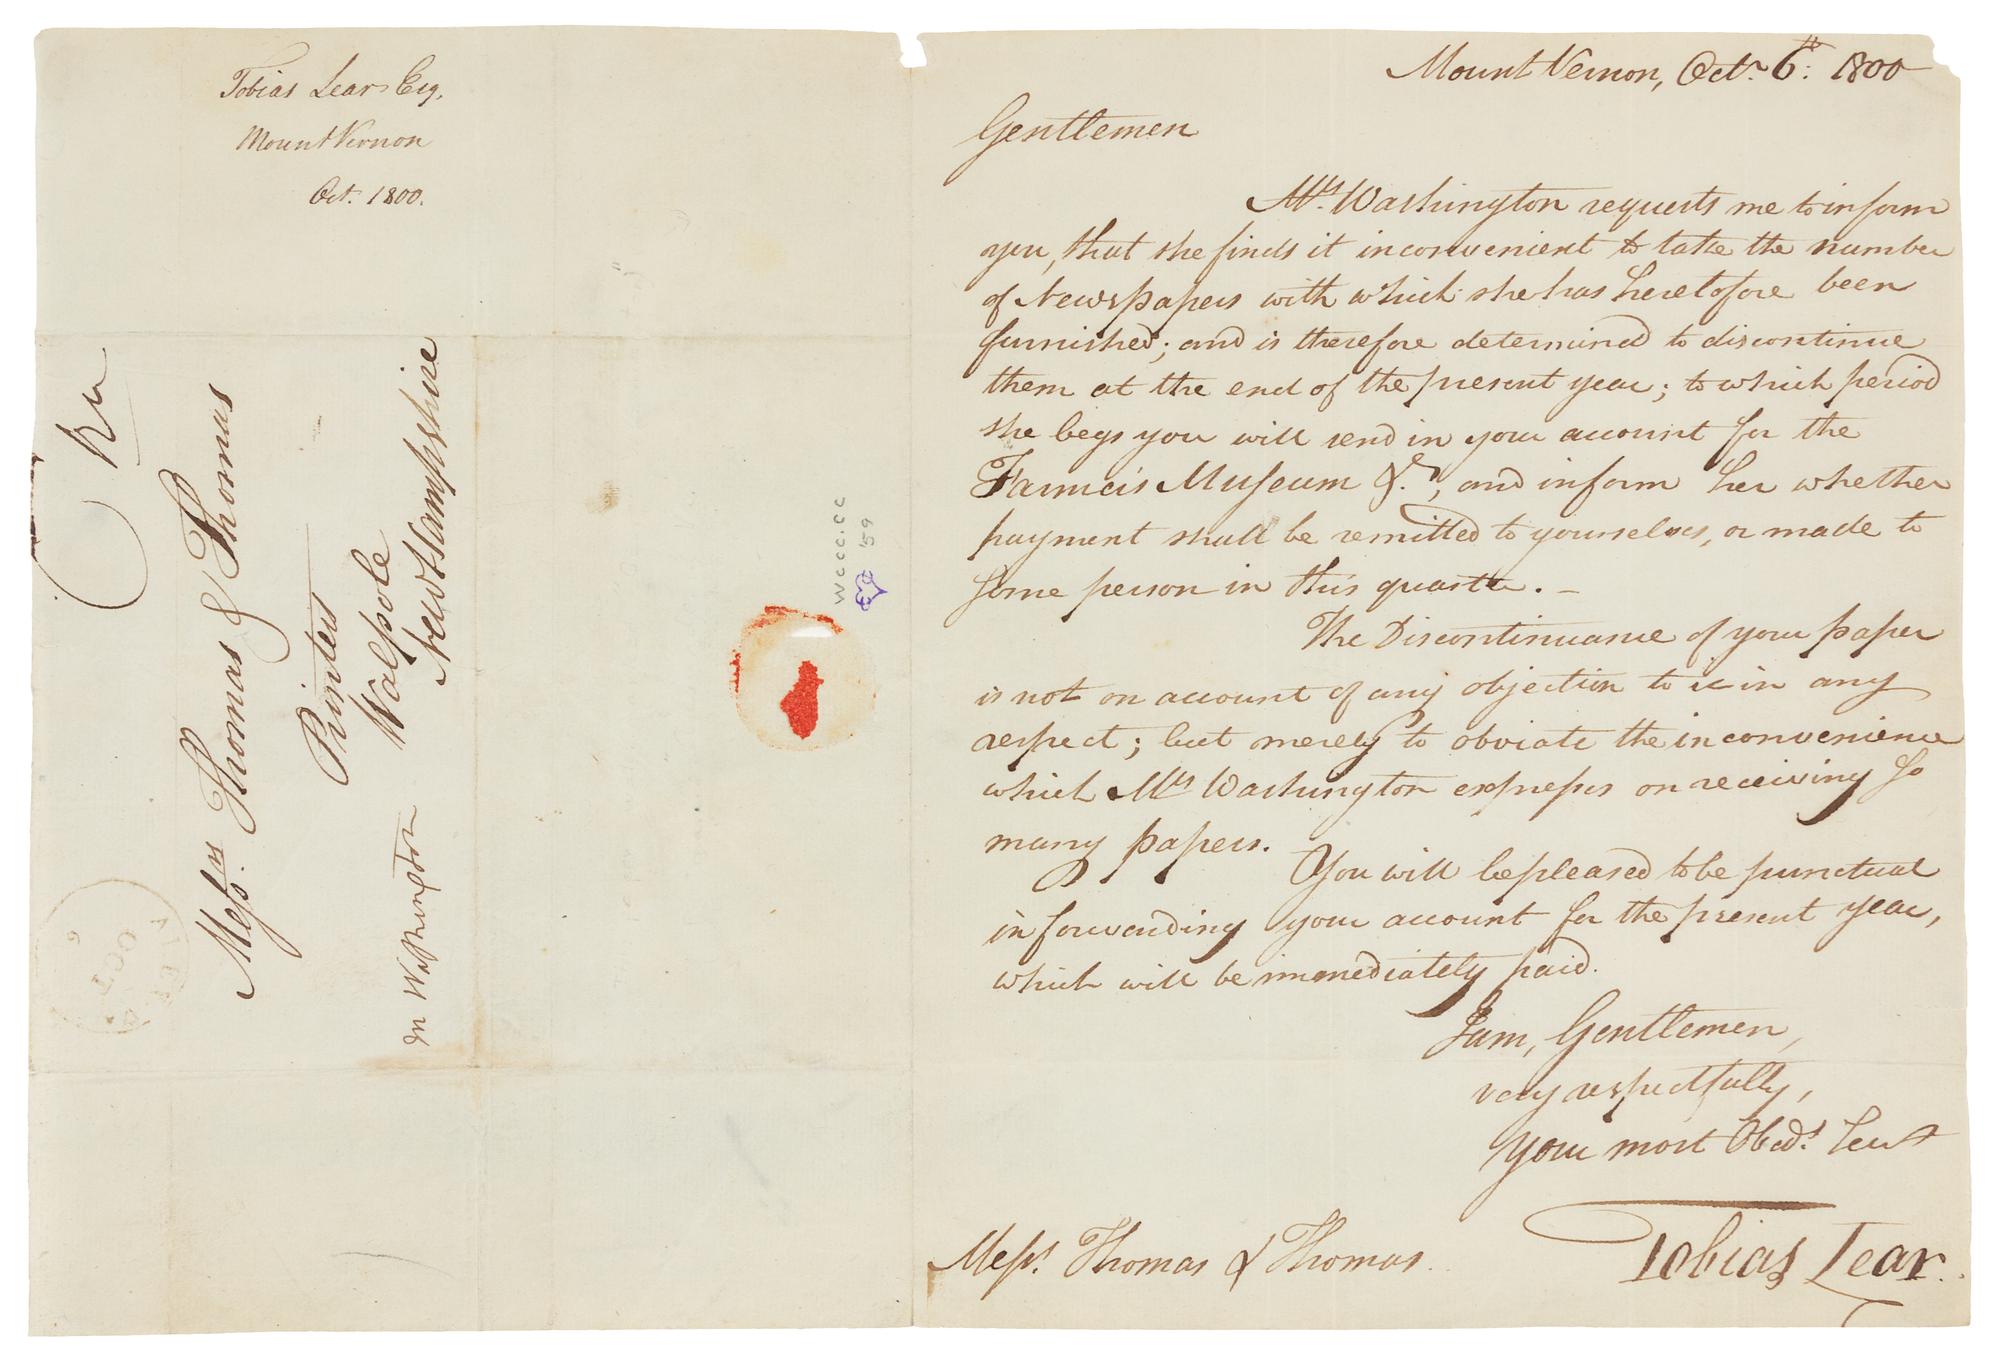 Tobias Lear Esq.
Mount Vernon
Oct. 1800.
Messrs. Thomas & Thomas
Printers
Walpole
New Hampshire
Mrs Washington
OCT
6
wccc.cc
'59
Mount Vernon, Octr. 6th: 1800
Gentlemen
Mrs. Washington requests me to inform
you, that she finds it inconvenient to take the number
of Newspapers with which she has heretofore been
furnished; and is therefore determined to discontinue
them at the end of the present year; to which period
she begs you will send in your account for the
Farmer's Museum &c., and inform her whether
payment shall be remitted to yourselves, or made to
some person in this quarter. —
The Discontinuance of your paper
is not on account of any objection to it in any
respect; but merely to obviate the inconvenience
which Mrs Washington expresses on receiving so
many papers.
You will be pleased to be punctual
in forwarding your account for the present year,
which will be immediately paid.
I am, Gentlemen,
very respectfully,
Your most Obedt. Servt
Tobias Lear.
Messrs. Thomas & Thomas.